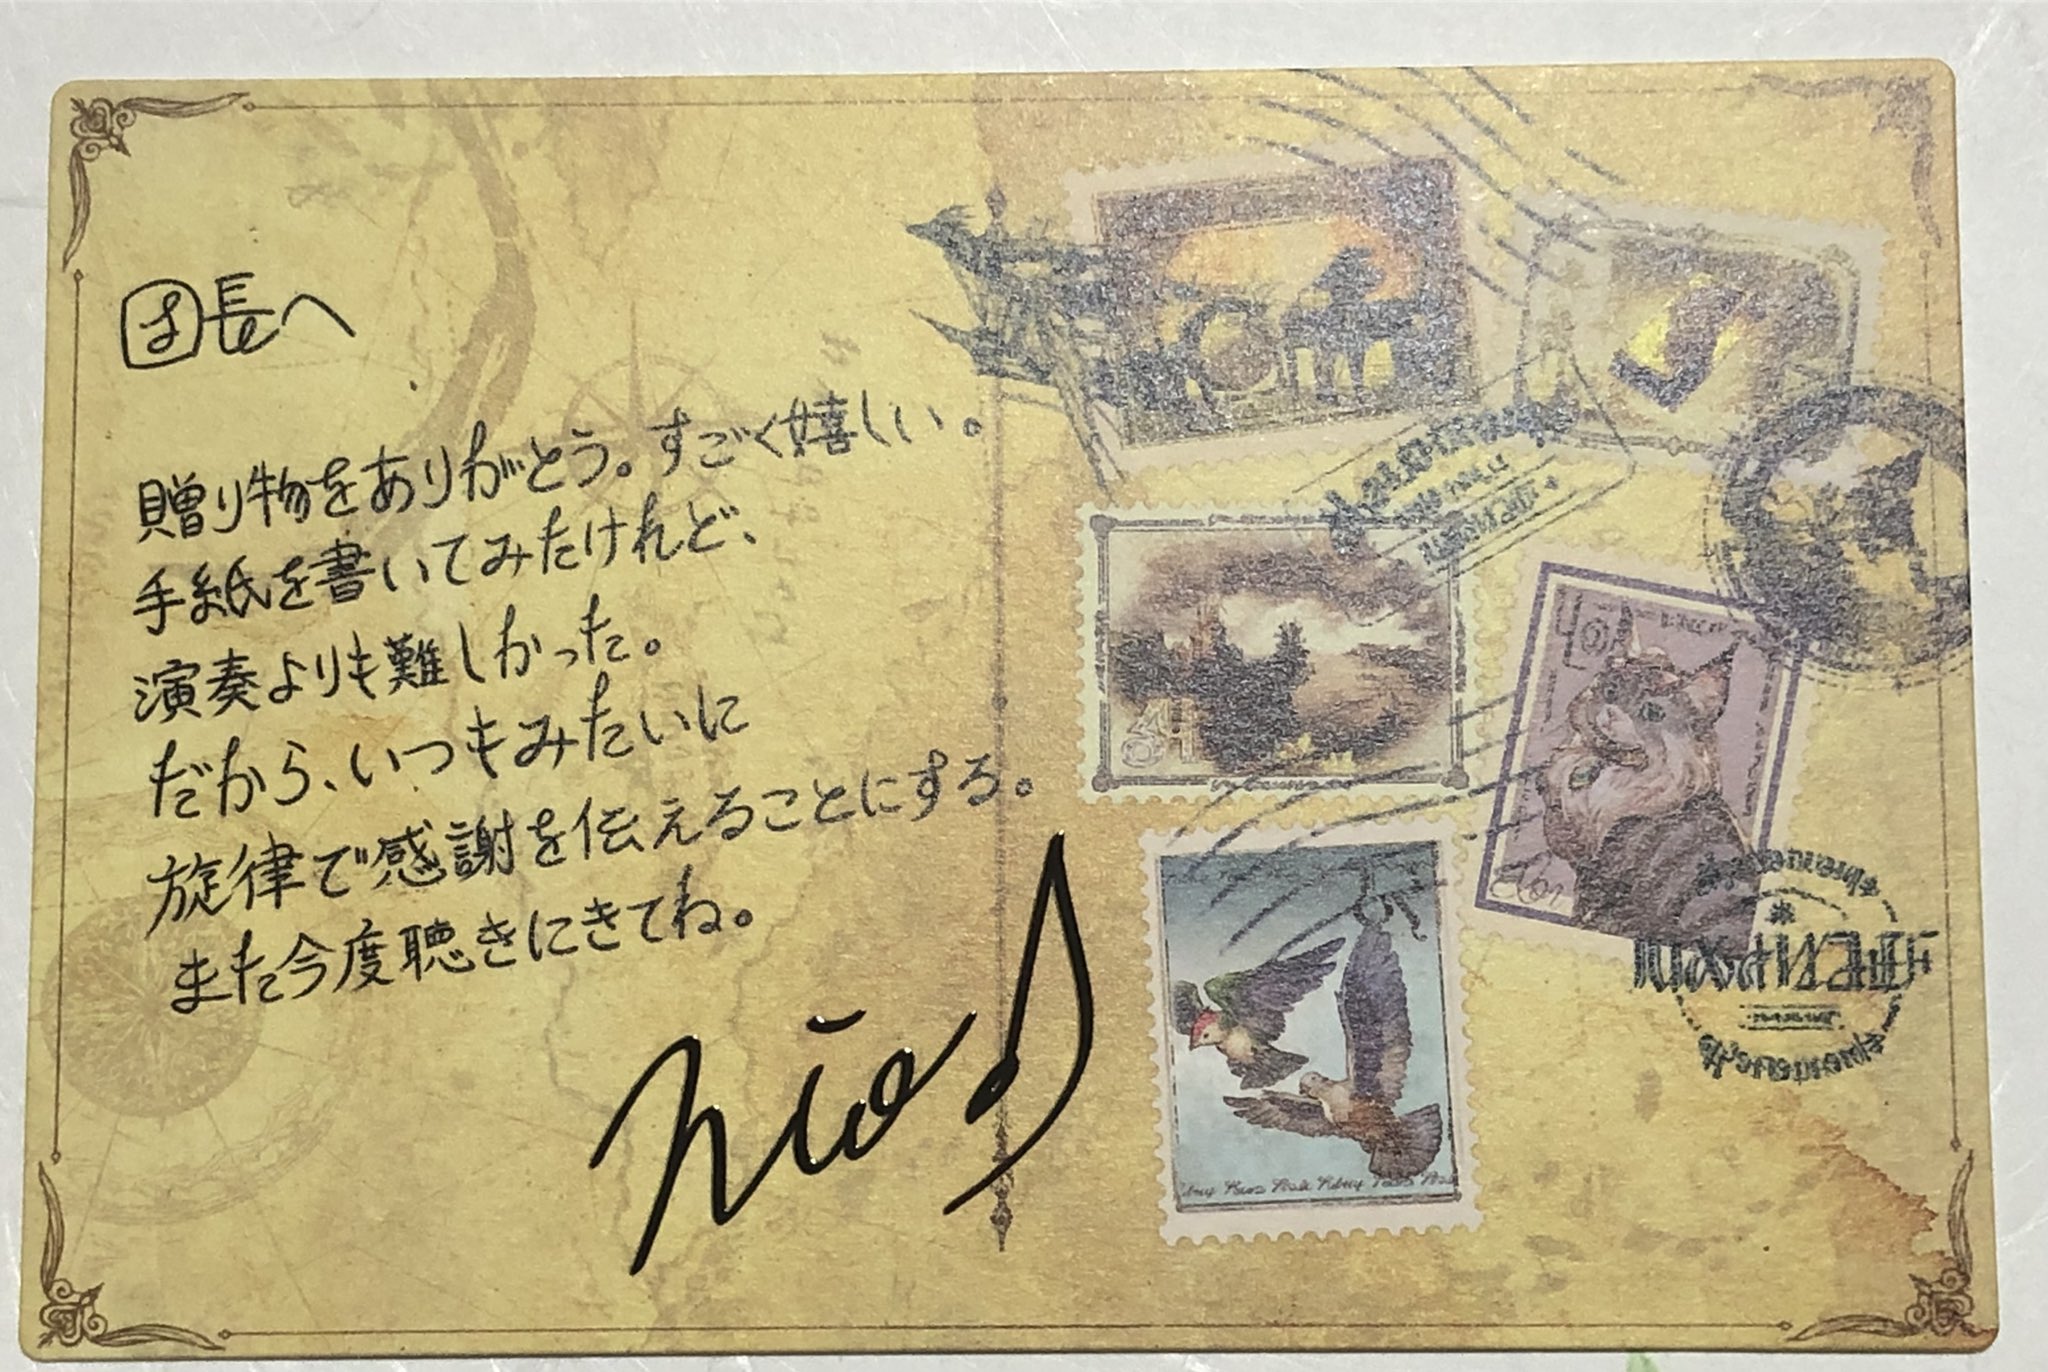 団長へ
贈り物をありがとう。すごく嬉しい。
手紙を書いてみたけれど、
演奏よりも難しかった。
だから、いつもみたいに
旋律で感謝を伝えることにする。
また今度聴きにきてね。
nio